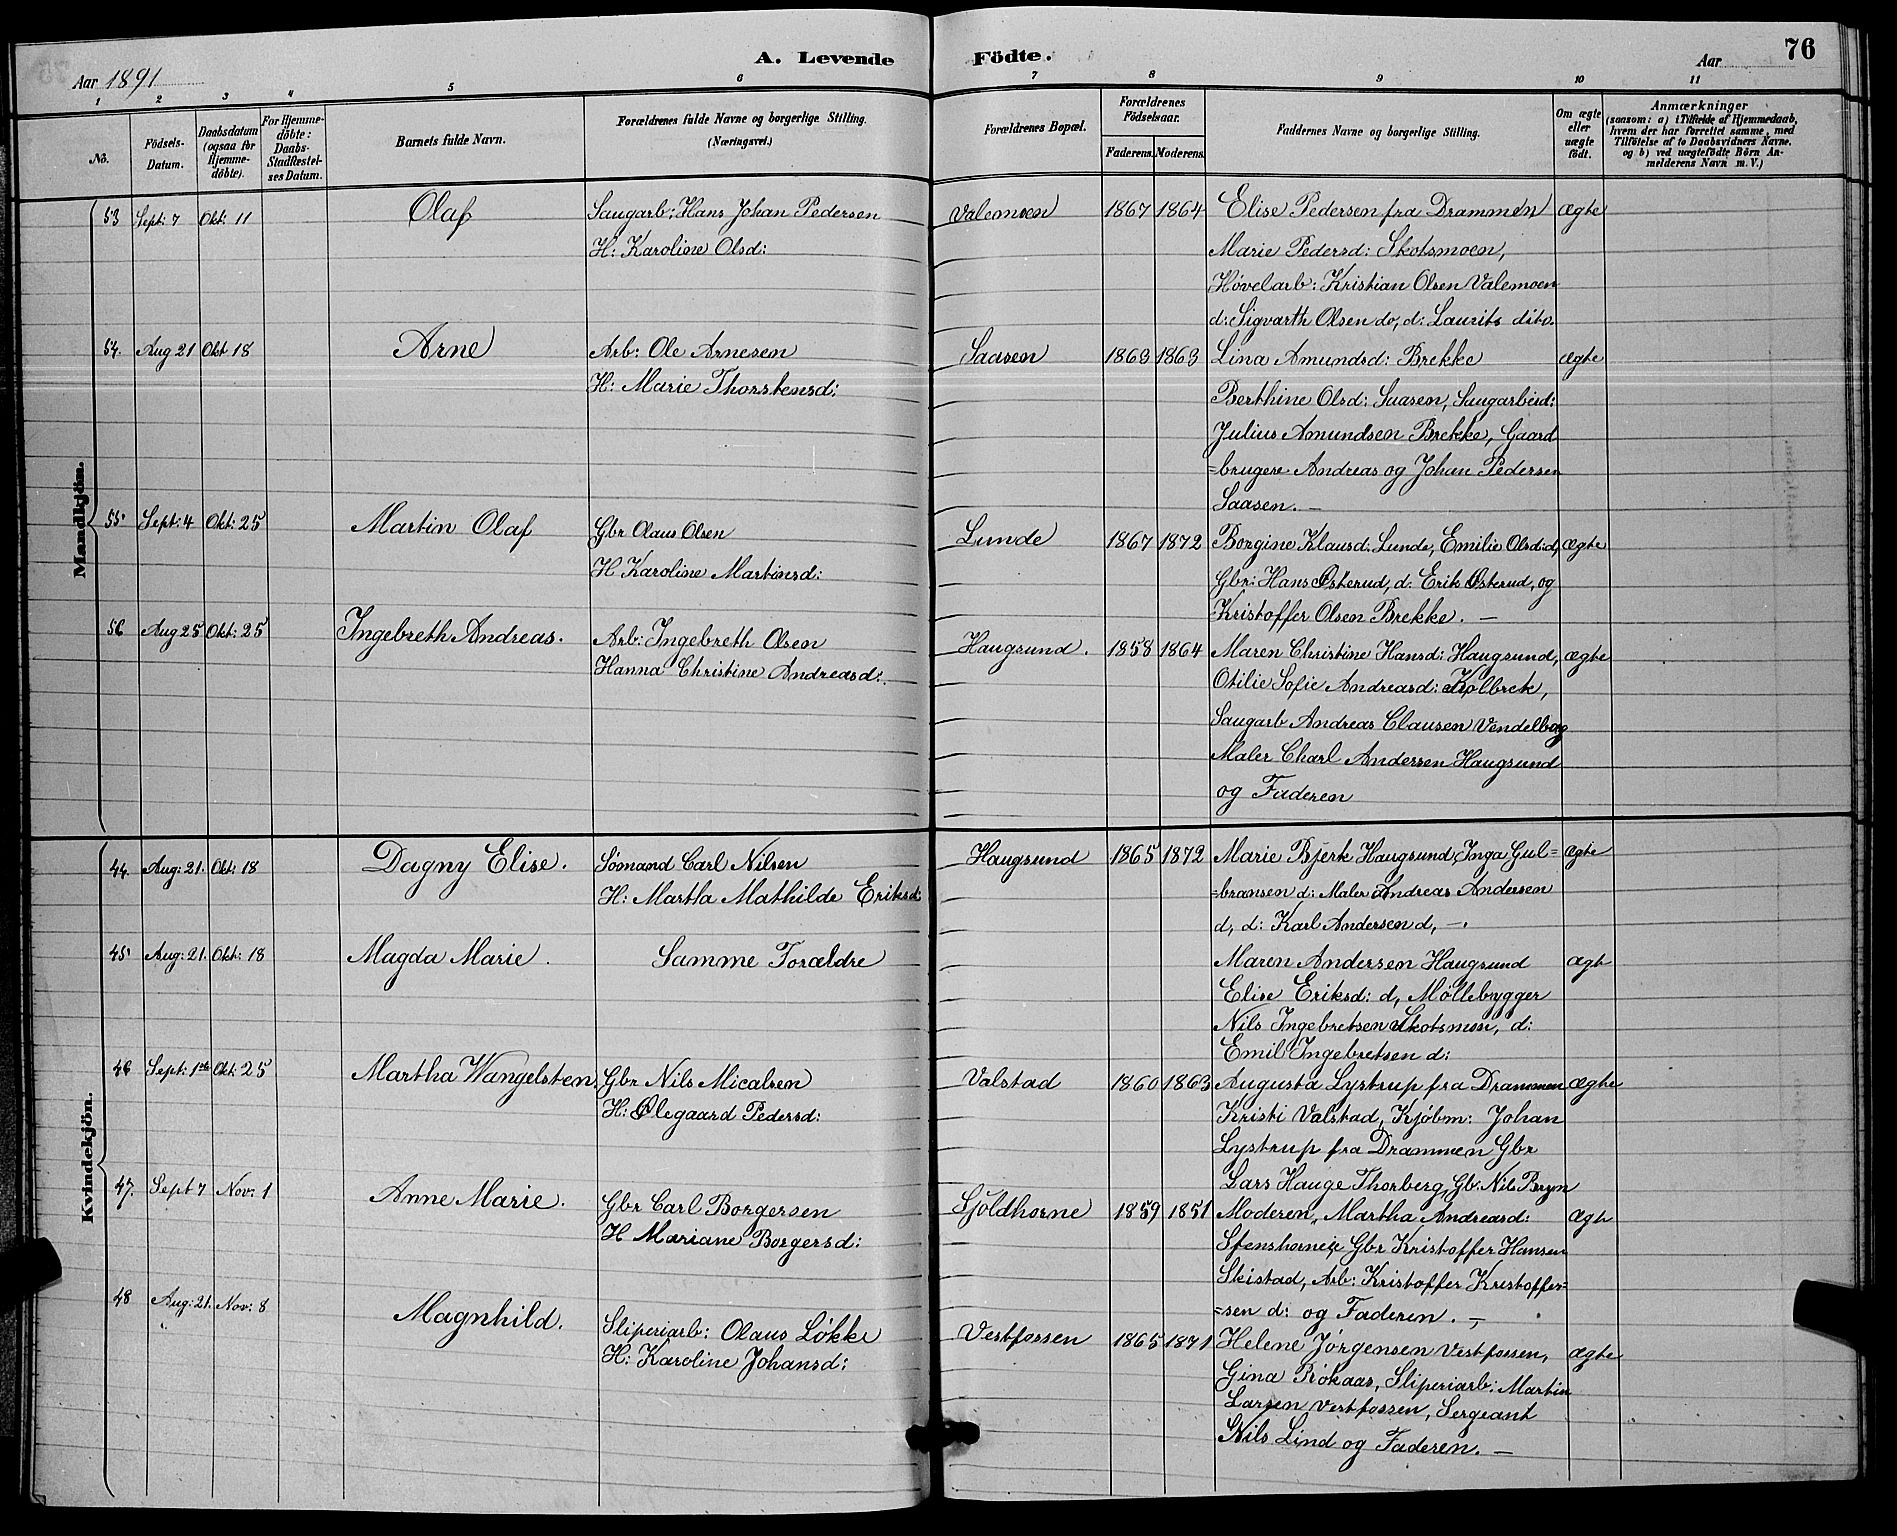 Aar 1891
A. Levende
Födte.
Aar
76
1 2 3 4 5 6 7 8 9 10 11
No.
Födsels-Datum.
Daabsdatum (ogsaa for Hjemme-döbte).
For Hjemme-döbte: Daabs-Stadfæstel-ses Datum.
Barnets fulde Navn.
Forældrenes fulde Navne og borgerlige Stilling. (Næringsvei.)
Forældrenes Bopæl.
Forældrenes Födselsaar.
Faderens. Moderens.
Faddernes Navne og borgerlige Stilling.
Om ægte eller uægte födt.
Anmærkninger
(saasom: a) i Tilfælde af Hjemmedaab,
hvem der har forrettet samme, med
Tilföielse af to Daabsvidners Navne.
og b) ved uægtefödte Börn An-
melderens Navn m. V.)
Mandkjön.
53 Sept: 7 Okt: 11 Olaf Saugarb: Hans Johan Pedersen Valemoen 1867 1864 Elise Pedersen fra Drammen ægte
H: Karoline Olsd: Marie Pedersd: Skotsmoen,
Høvelarb: Kristian Olsen Valemoen
d: Sigvarth Olsen do, d: Laurits dito.
54. Aug 21 Okt 18 Arne Arb: Ole Arnesen Saasen 1863 1863 Lina Amundsd: Brekke ægte
H: Marie Thorstensd: Berthine Olsd: Saasen, Saugarbeid:
Julius Amundsen Brekke, Gaard
=brugere Andreas og Johan Pedersen
Saasen. —
55 Sept: 4 Okt: 25 Martin Olaf Gbr Olaus Olsen Lunde 1867 1872 Borgine Klausd: Lunde, Emilie Olsd: d, ægte
H Karoline Martinsd: Gbr: Hans Østerud, d: Erik Østerud, og
Kristoffer Olsen Brekke. —
56 Aug 25 Okt: 25 Ingebreth Andreas. Arb: Ingebreth Olsen Haugsund. 1858 1864 Maren Christine Hansd: Haugsund, ægte
Hanna Christine Andreasd: Otilie Sofie Andreasd: Kolbrek,
Saugarb Andreas Clausen Vendelborg
Maler Charl Andersen Haugsund
og Faderen
Kvindekjön.
44. Aug: 21. Okt: 18 Dagny Elise. Sömand Carl Nilsen Haugsund 1865 1872 Marie Bjerk Haugsund, Inga Gul= ægte
H: Martha Mathilde Eriksd =bransen d: Maler Andreas Andersen
d, d: Karl Andersen d, —.
45 Aug: 21. Okt: 18 Magda Marie. Samme Forældre Maren Andersen Haugsund ægte
Elise Eriksd: d, Møllebygger
Nils Ingebretsen Skotsmoen, d:
Emil Ingebretsen d:
46 Sept: 1ste Okt: 25 Martha Wangelsten Gbr Nils Micalsen Valstad 1860 1863 Augusta Lystrup fra Drammen ægte
H: Olegaard Pedersd: Kristi Valstad, Kjøbm: Johan
Lystrup fra Drammen Gbr
Lars Hauge Thorberg, Gb. Nils Bryn
47. Sept 7 Nov: 1 Anne Marie. Gbr Carl Borgersen Sjöldhorne 1859 1851 Moderen, Martha Andreasd: ægte
H Mariane Borgersd: Stenshorneie Gbr Kristoffer Hansen
Skistad, Arb: Kristoffer Kristoffer=
=sen d: og Faderen. —
48 Aug: 21. Nov: 8 Magnhild. Sliperiarb: Olaus Løkke Vestfossen 1865 1871 Helene Jørgensen Vestfossen, ægte
H: Karoline Johansd: Gina Røkaas, Sliperiarb: Martin
Larsen Vestfossen, Sergeant
Nils Lind og Faderen. —